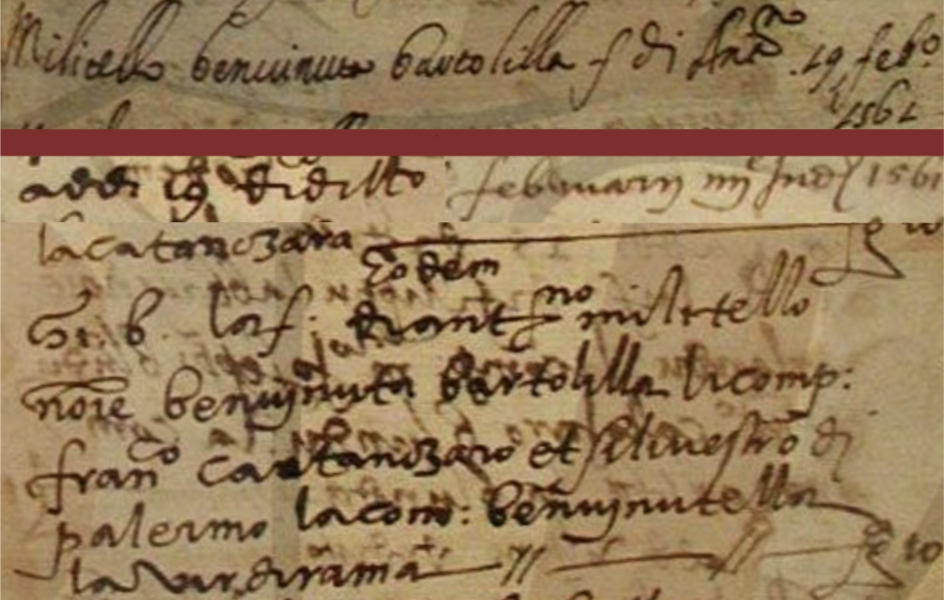 Milicello benvinuta bartolilla f di Ant.no 19 feb.o
1561
addi 19 di ditto februarij iiij Ind 1561
la catanzara
Eodem
b. la f: di ant.no militello
no(m)e benvinuta bartolilla li comp:
fran.co catanzaro et silvestro di
palermo la com: benvinutella
la virdirama // //